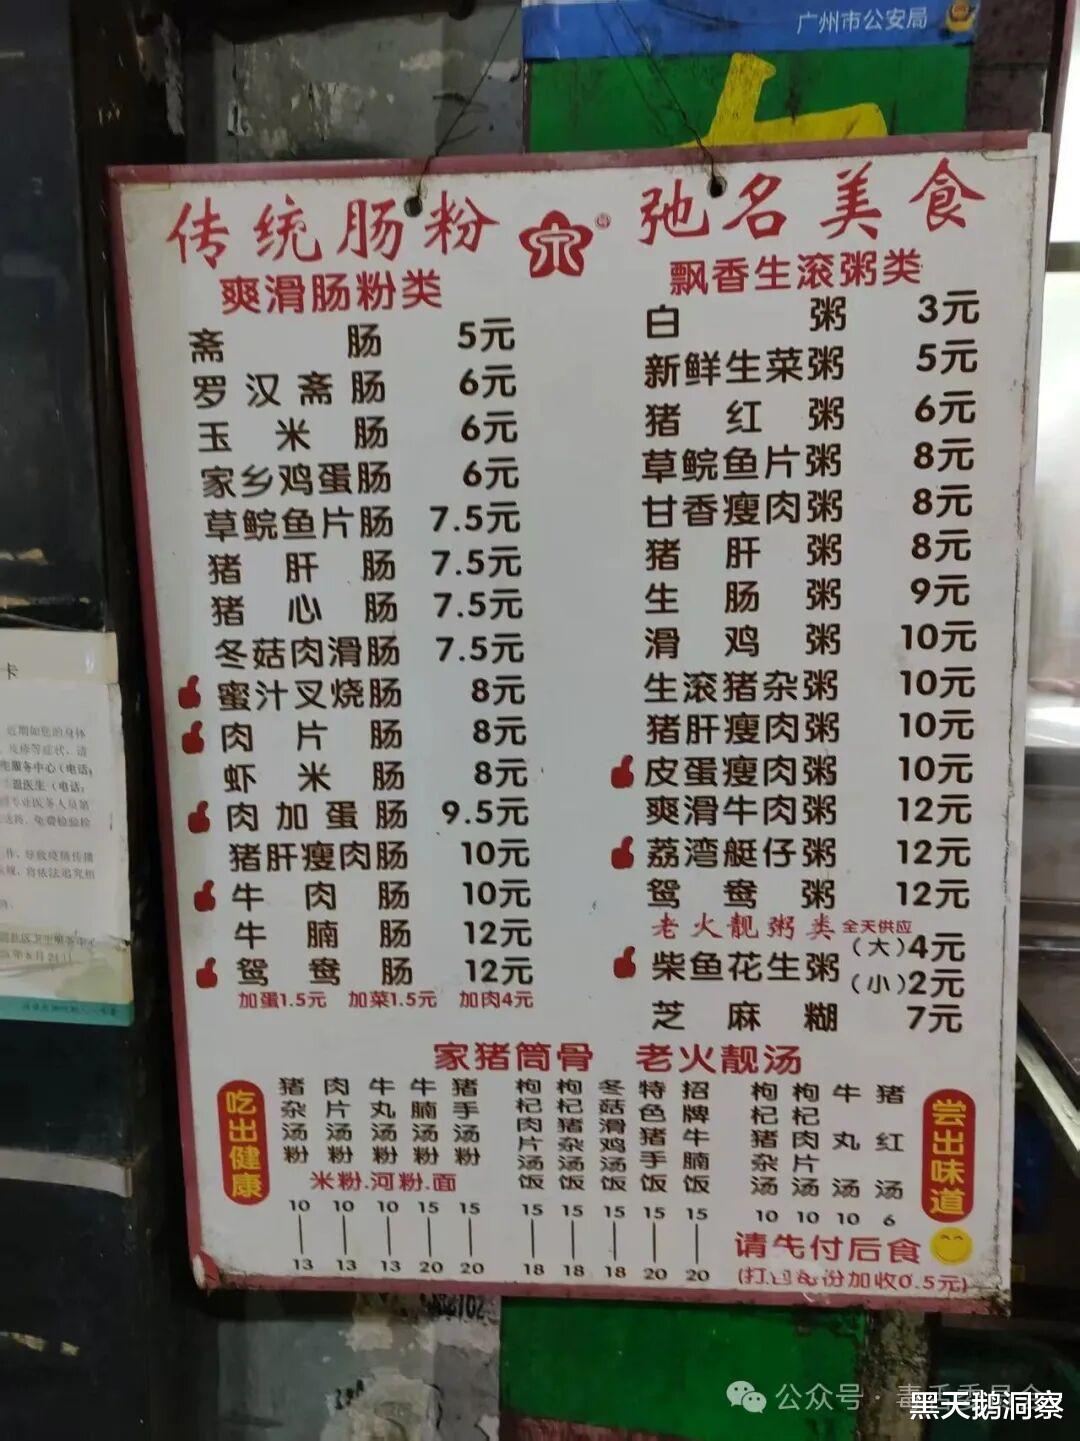 广州市公安局
传统肠粉 弛名美食
爽滑肠粉类
斋肠 5元
罗汉斋肠 6元
玉米肠 6元
家乡鸡蛋肠 6元
草鲩鱼片肠 7.5元
猪肝肠 7.5元
猪心肠 7.5元
冬菇肉滑肠 7.5元
蜜汁叉烧肠 8元
肉片肠 8元
虾米肠 8元
肉加蛋肠 9.5元
猪肝瘦肉肠 10元
牛肉肠 10元
牛腩肠 12元
鸳鸯肠 12元
加蛋1.5元 加菜1.5元 加肉4元
飘香生滚粥类
白粥 3元
新鲜生菜粥 5元
猪红粥 6元
草鲩鱼片粥 8元
甘香瘦肉粥 8元
猪肝粥 8元
生肠粥 9元
滑鸡粥 10元
生滚猪杂粥 10元
猪肝瘦肉粥 10元
皮蛋瘦肉粥 10元
爽滑牛肉粥 12元
荔湾艇仔粥 12元
鸳鸯粥 12元
老火靓粥类 全天供应
柴鱼花生粥 (大)4元
(小)2元
芝麻糊 7元
家猪筒骨 老火靓汤
吃出健康
猪杂汤粉 10—13
肉片汤粉 10—13
牛丸汤粉 10—13
牛腩汤粉 15—20
猪手汤粉 15—20
米粉.河粉.面
枸杞肉片汤饭 15—18
枸杞猪杂汤饭 15—18
冬菇滑鸡汤饭 15—18
特色猪手饭 15—20
招牌牛腩饭 15—20
枸杞猪杂汤 10
枸杞肉片汤 10
牛丸汤 10
猪红汤 6
尝出味道
请先付后食
(打包每份加收0.5元)
卡
近期如您的身体
皮疹等症状，请
生服务中心（电话
温医生（电话：
公众号
黑天鹅洞察